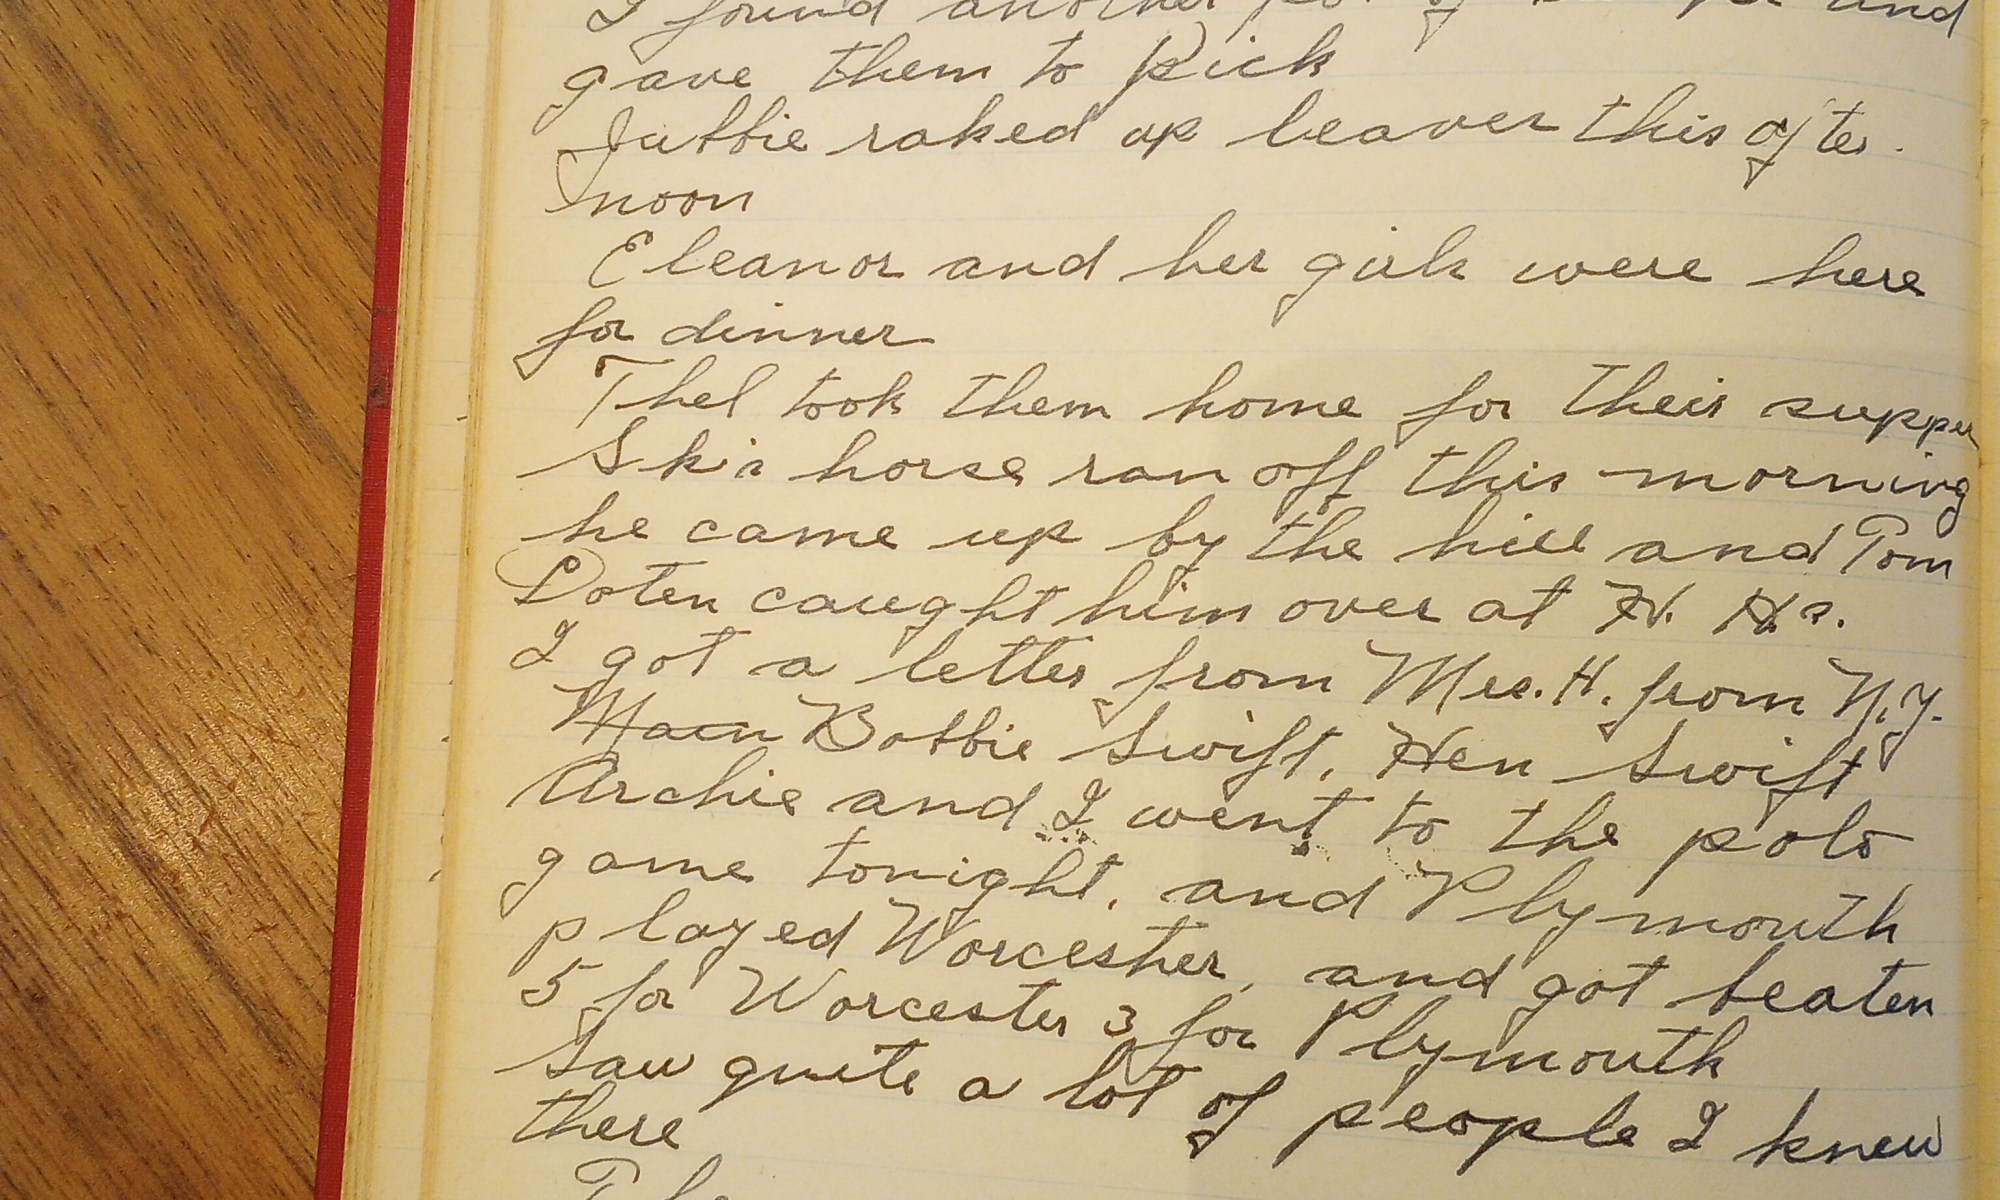 I found another of and
gave them to Rick
Jubbie raked up leaves this after.
noon
Eleanor and her girls were here
for dinner
Thel took them home for their supper
Sk's horse ran off this morning
he came up by the hill and Tom
Doten caught him over at H. H s.
I got a letter from Mrs. H. from N.Y.
Main Bobbie Swift, Hen Swift
Archie and I went to the polo
game tonight, and Plymouth
played Worcester, and got beaten
5 for Worcester 3 for Plymouth
Saw quite a lot of people I knew
there